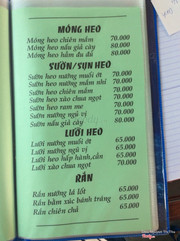 MÓNG HEO
Móng heo chiên mắm 70.000
Móng heo nấu giả cầy 80.000
Móng heo hầm đu đủ 80.000
SƯỜN/SỤN HEO
Sườn heo nướng muối ớt 70.000
Sườn heo nướng mắm nhĩ 70.000
Sườn heo chiên mắm 70.000
Sườn heo xào chua ngọt 70.000
Sườn heo ram mẹ 70.000
Sườn nướng ngũ vị 70.000
Sườn nấu giả cầy 80.000
LƯỠI HEO
Lưỡi nướng muối ớt 65.000
Lưỡi nướng ngũ vị 65.000
Lưỡi heo hấp hành,cần 65.000
Lưỡi xào chua ngọt 65.000
RẮN
Rắn nướng lá lốt 65.000
Rắn bằm xúc bánh tráng 65.000
Rắn chiên chả 65.000